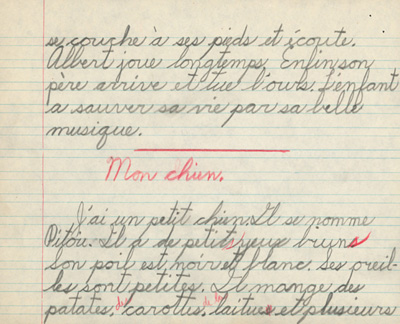 se couche à ses pieds et écoute.
Albert joue longtemps. Enfin son
père arrive et tue l'ours. L'enfant
a sauver sa vie par sa belle
musique.
Mon chien.
J'ai un petit chien. Il se nomme
Pitou. Il a de petits yeux bruns
son poil est noir et blanc. Ses oreil-
les sont petites. Il mange des
patates, des carottes, de la laitue et plusieurs